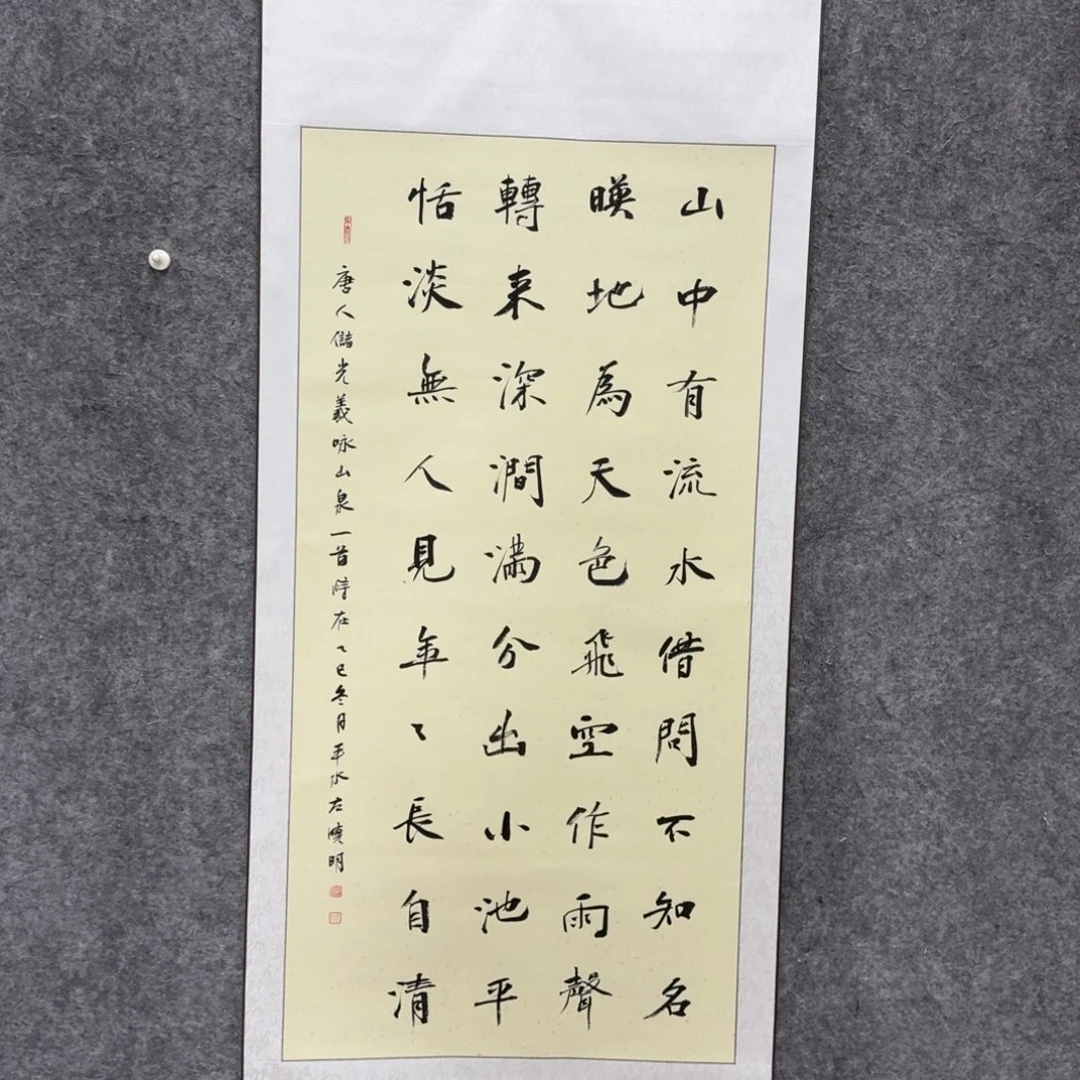 山中有流水借問不知名
暎地為天色飛空作雨聲
轉来深澗滿分出小池平
恬淡無人見年〻長自清
唐人儲光義咏山泉一首時在乙巳冬月平水左曉明